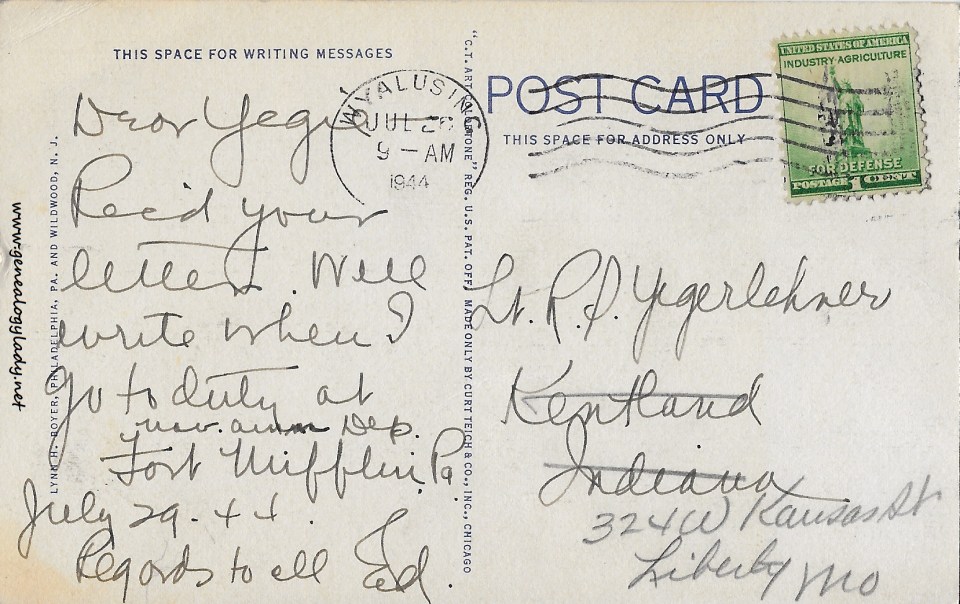 THIS SPACE FOR WRITING MESSAGES
Dear Yegie
Rec'd your
letters. Will
write when I
go to duty at
nav. amm Dep.
Fort Mifflin Pa.
July 29-44.
Regards to all Ed.
www.genealogylady.net
LYNN H. BOYER, PHILADELPHIA, PA. AND WILDWOOD, N. J.
"C.T. ART COLORTONE" REG. U.S. PAT. OFF. MADE ONLY BY CURT TEICH & CO., INC., CHICAGO
WYALUSING
JUL 26
9 - AM
1944
POST CARD
THIS SPACE FOR ADDRESS ONLY
UNITED STATES OF AMERICA
INDUSTRY·AGRICULTURE
FOR DEFENSE
POSTAGE 1 CENT
Lt. R. I. Yegerlehner
Kentland
Indiana
324 W Kansas St
Liberty Mo